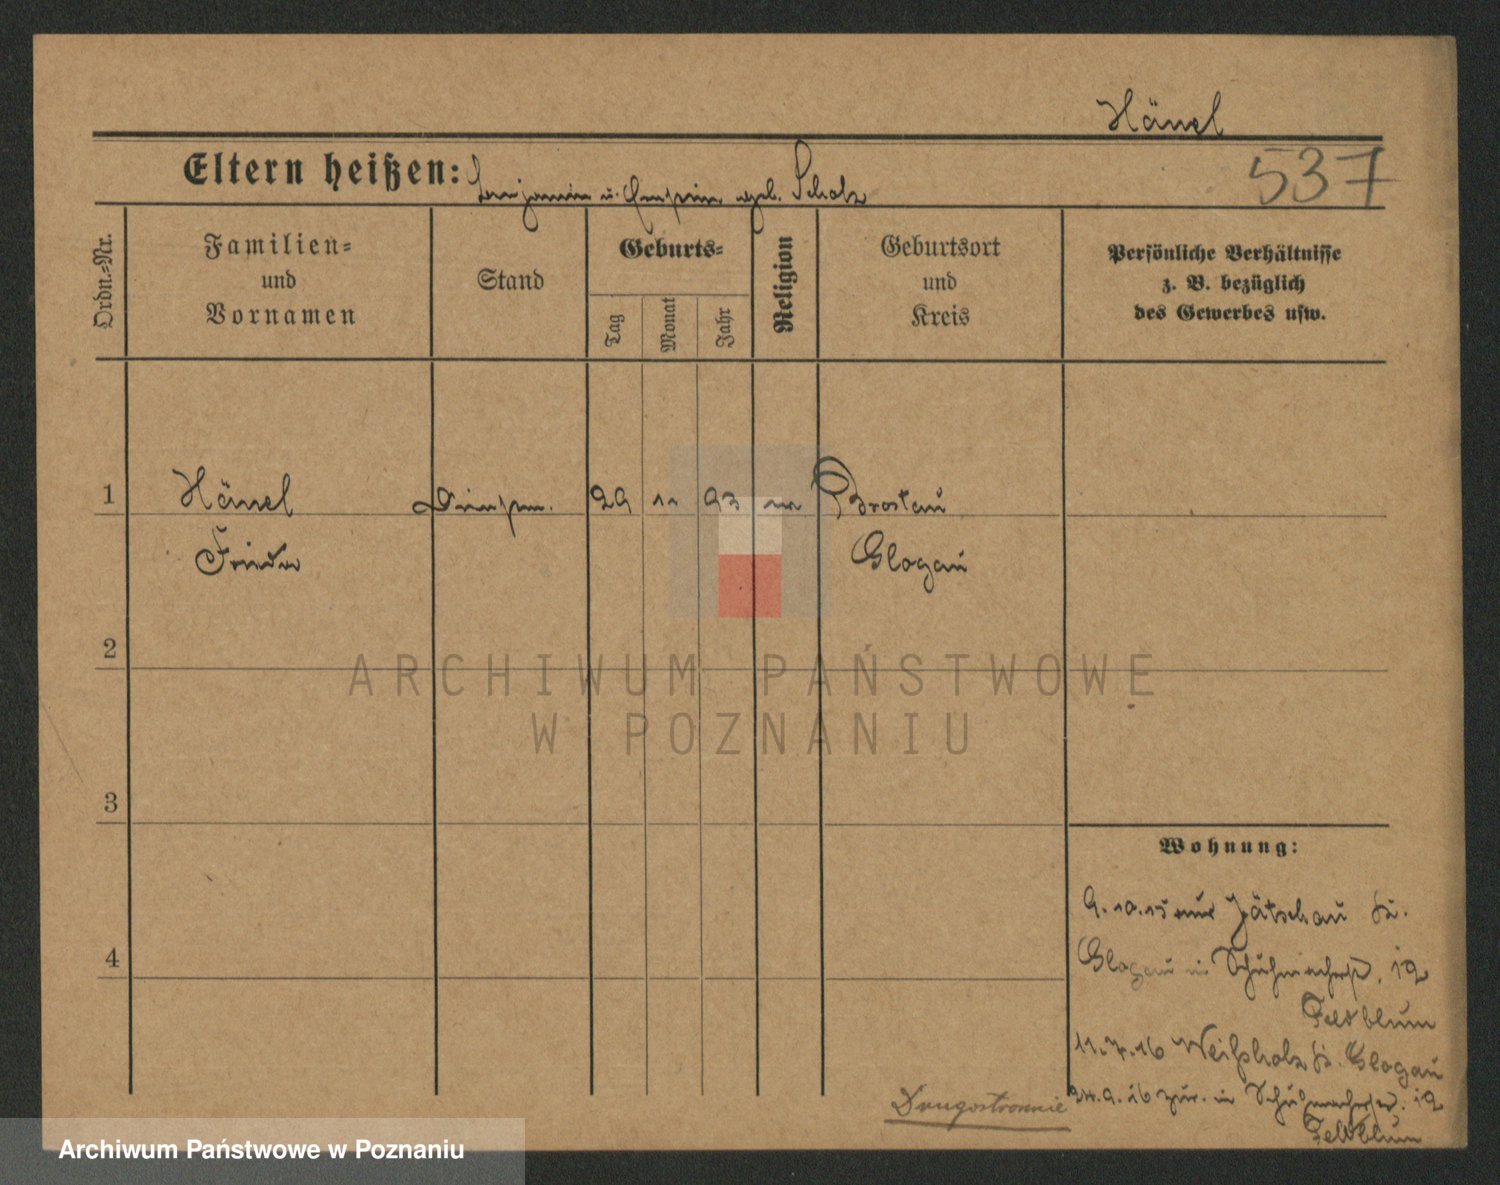 Hänel
Eltern heißen: Benjamin u. geb. Scholz
537
Ordn.-Nr.
Familien-
und
Vornamen
Stand
Geburts-
Tag
Monat
Jahr
Religion
Geburtsort
und
Kreis
Persönliche Verhältnisse
z. B. bezüglich
des Gewerbes usw.
1 Hänel 29 11 93 Brostau
Frieda Glogau
2
ARCHIWUM PAŃSTWOWE
W POZNANIU
3
Wohnung:
9.10.15 aus Jätschau Kr.
Glogau in Schuhmacherst. 12
Feldblum
4
11.7.16 Weißholz Kr. Glogau
24.9.16 zur. in Schuhmacherstr. 12
Feldblum
Drugostronnie
Archiwum Państwowe w Poznaniu